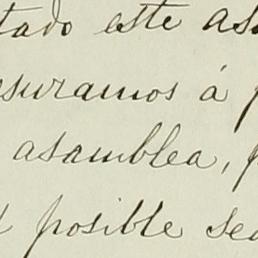 tado este asa
esuramos á p
asamblea, p
posible sea